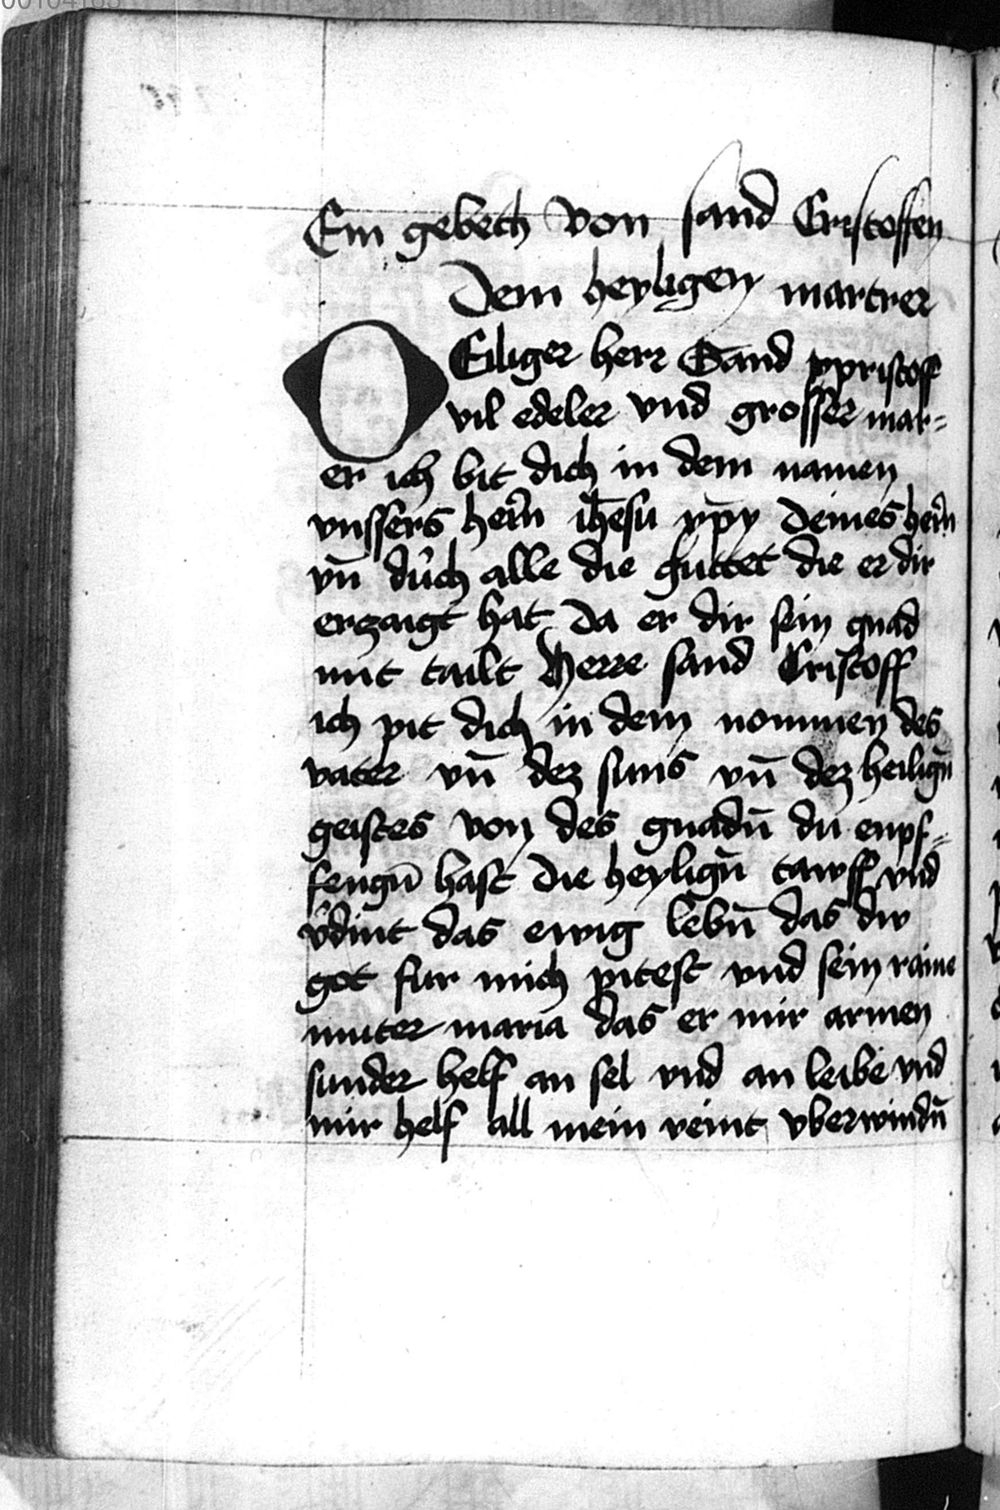 00104165
Ein gebech von sand Cristoffen
Dem heyligen martrer
O Eiliger herr Sand xpristoff
vil edeler vnd grosser mar-
er ich bit dich in dem namen
vnssers hern̄ ih̄esu xp̄y deines hern̄
vn̄ duͦch alle die guttet die er dir
erzaigt hat Da er dir sein gnad
mit tailt Herre sand Cristoff
ich pit dich in dem nommen des
vater vn̄ dez suns vn̄ dez heilign̄
geistes von des gnadn̄ du enpf-
fengn̄ hast die heylign̄ tawff vnd
v̄dint das ewig lebn̄ das dw
got fur mich pitest vnd sein raine
muter maria das er mir armen
sunder helf an sel vnd an leibe vnd
mir helf all mein veint vberwindn̄